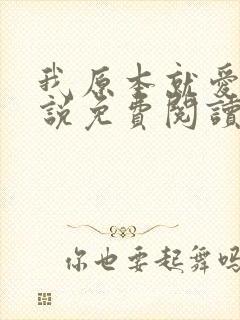 我原本就愛
說免費閱讀
你也要起舞嗎